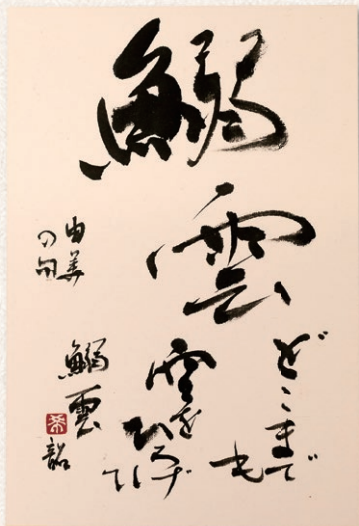 鰯
雲
どこまで
も
空を
ひろげ
て
鰯雲
由美
の句